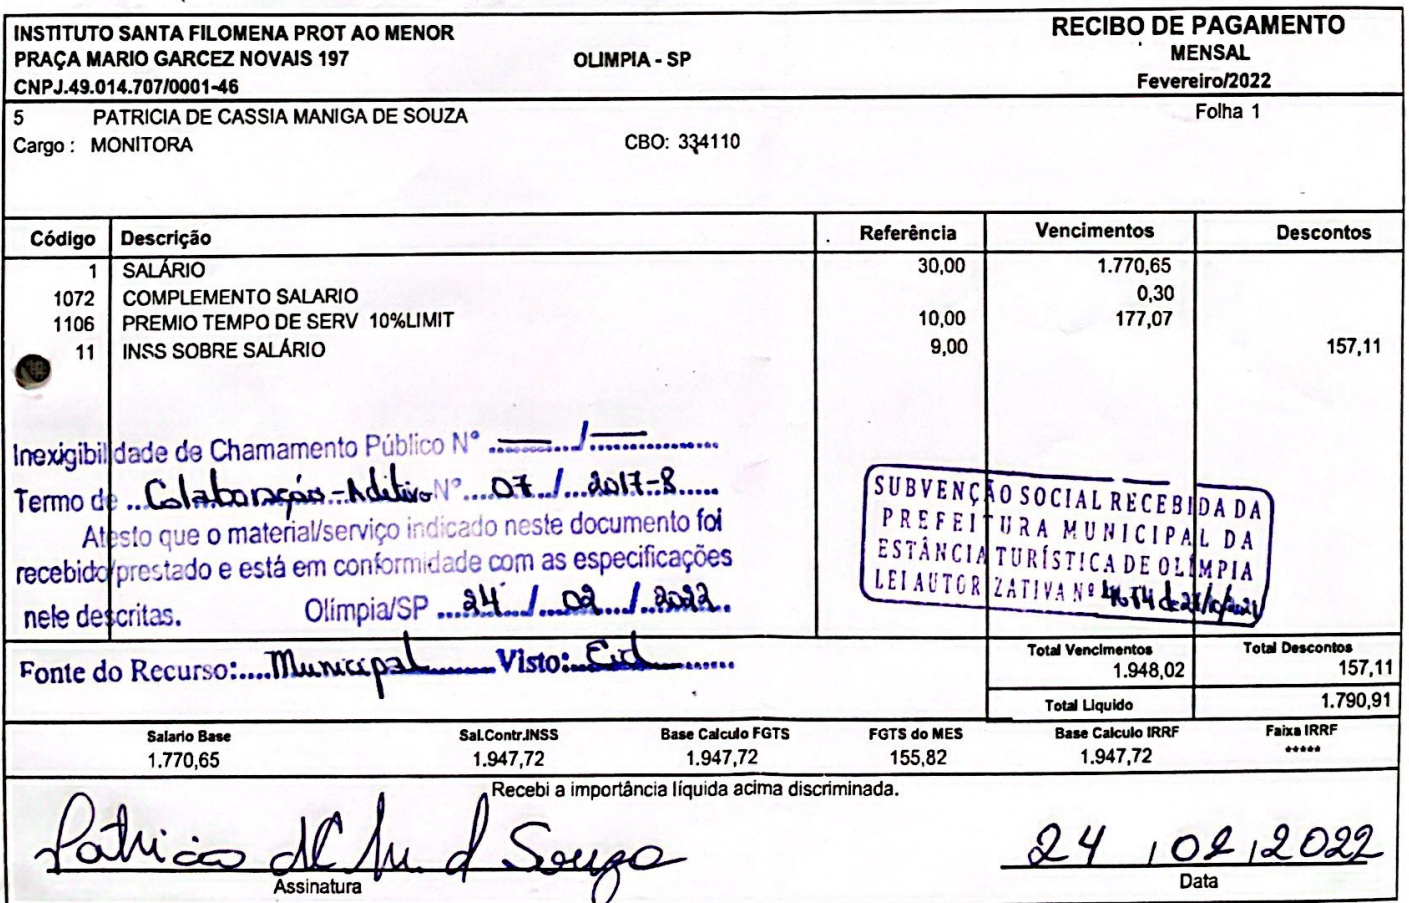 INSTITUTO SANTA FILOMENA PROT AO MENOR
RECIBO DE PAGAMENTO
PRAÇA MARIO GARCEZ NOVAIS 197 OLIMPIA - SP MENSAL
CNPJ.49.014.707/0001-46 Fevereiro/2022
5 PATRICIA DE CASSIA MANIGA DE SOUZA Folha 1
Cargo : MONITORA CBO: 334110
Código Descrição Referência Vencimentos Descontos
1 SALÁRIO 30,00 1.770,65
1072 COMPLEMENTO SALARIO 0,30
1106 PREMIO TEMPO DE SERV 10%LIMIT 10,00 177,07
11 INSS SOBRE SALÁRIO 9,00 157,11
Inexigibilidade de Chamamento Público N° ...../.....
Termo de ...Colaboração-Aditivo N°....07../...2017-8.....
Atesto que o material/serviço indicado neste documento foi
recebido/prestado e está em conformidade com as especificações
nele descritas. Olímpia/SP ...24.../...02.../..2022..
SUBVENÇÃO SOCIAL RECEBIDA DA
PREFEITURA MUNICIPAL DA
ESTÂNCIA TURÍSTICA DE OLÍMPIA
LEI AUTORIZATIVA Nº
Fonte do Recurso:....Municipal.......Visto:
Total Vencimentos Total Descontos
1.948,02 157,11
Total Liquido 1.790,91
Salario Base Sal.Contr.INSS Base Calculo FGTS FGTS do MES Base Calculo IRRF Faixa IRRF
1.770,65 1.947,72 1.947,72 155,82 1.947,72 *****
Recebi a importância líquida acima discriminada.
Patricia d C M. d Souza 24 / 02 / 2022
Assinatura Data